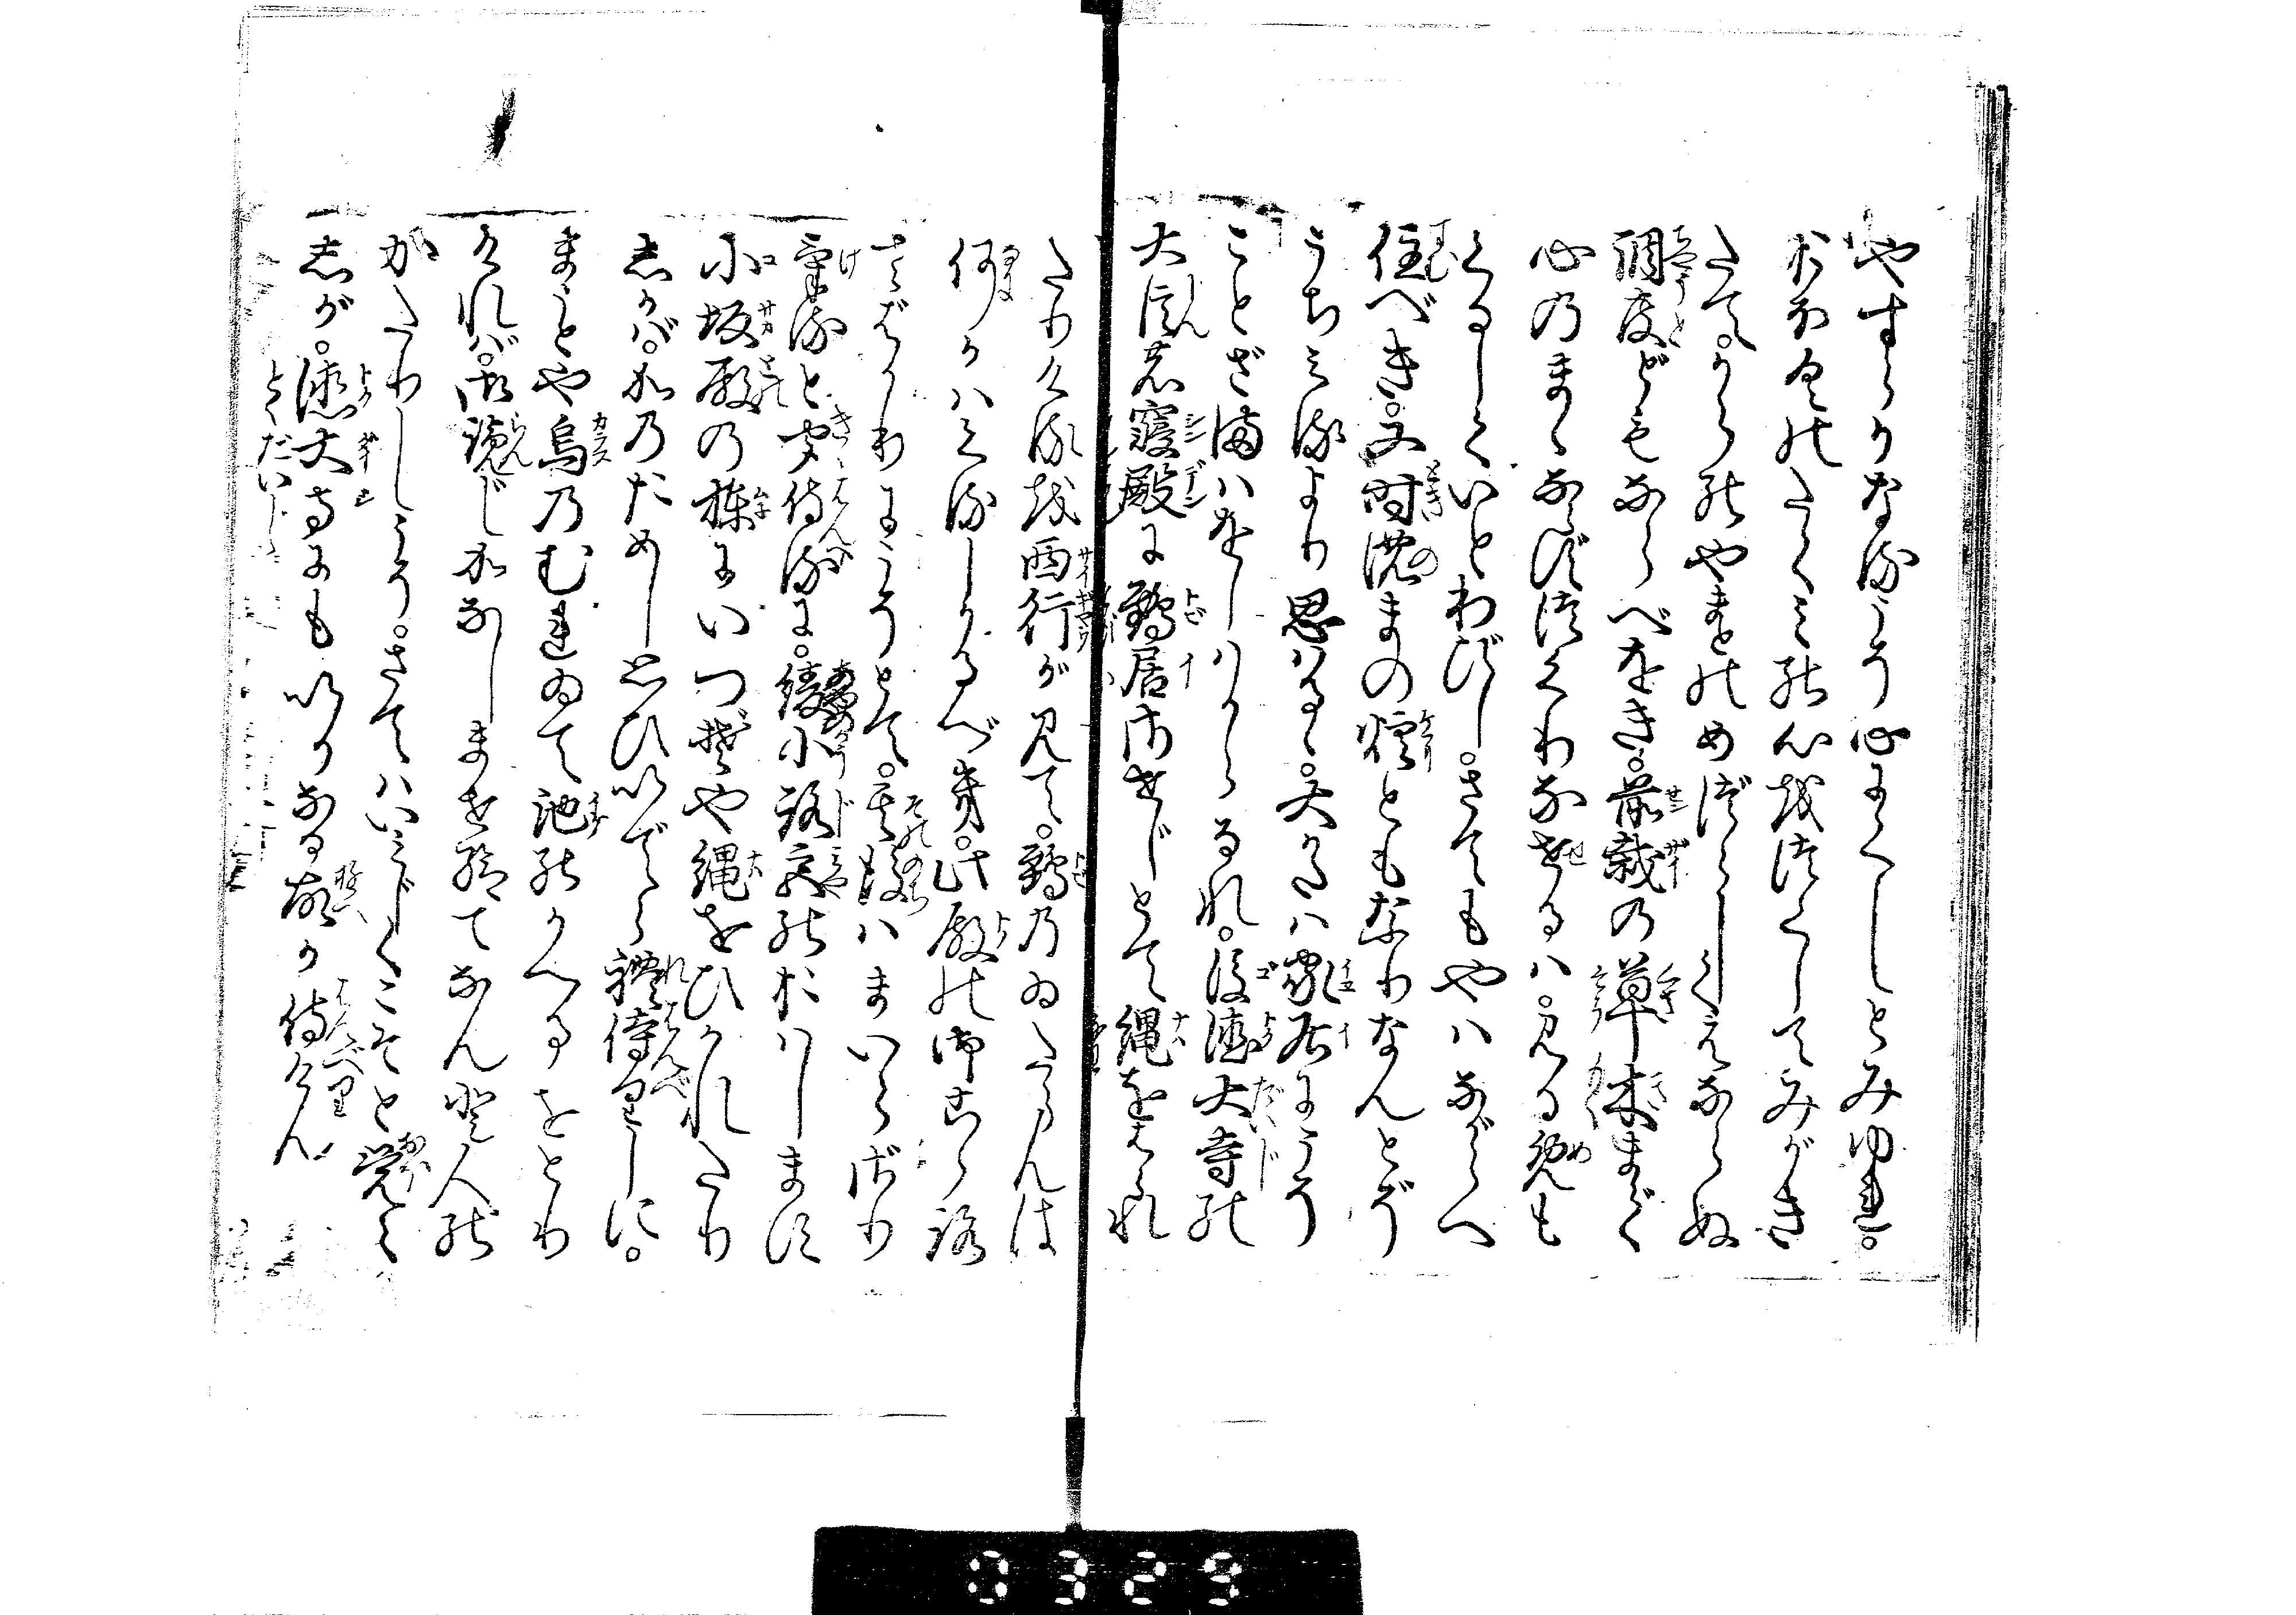 やすらかなるこそ心にくしとみゆれ。
おほくのたくみの心をつくしてみがき
たて。からのやまとのめづらしくえならぬ
調度どもならべをき。前栽の草木まで
心のまゝならずつくりなせるは。見る目も
くるしくいとわびし。さてもやはながらへ
住べき。又時のまの煙ともなりなんとぞ
うちみるより思はるゝ。大かたは家居にこそ
ことざまはをしはからるれ。後徳大寺の
大臣の寝殿に鵄居させじとて縄をはられ
たりけるを西行が見て。鵄のゐたらんは
何かはくるしかるべき。此殿の御こゝろ
さばかりにこそとて。其後はまいらざり
けると聞侍るに。綾小路宮のおはします
小坂殿の棟にいつぞや縄をひかれたり
しかば。かのためし思ひいでられ侍りしに。
まことや烏のむれゐて池のかへるをとり
ければ。御覧じかなしませ給てなん と人の
かたりしこそ。さてはいみじくこそと覚え
しが。徳大寺にもいかなる故か侍けん